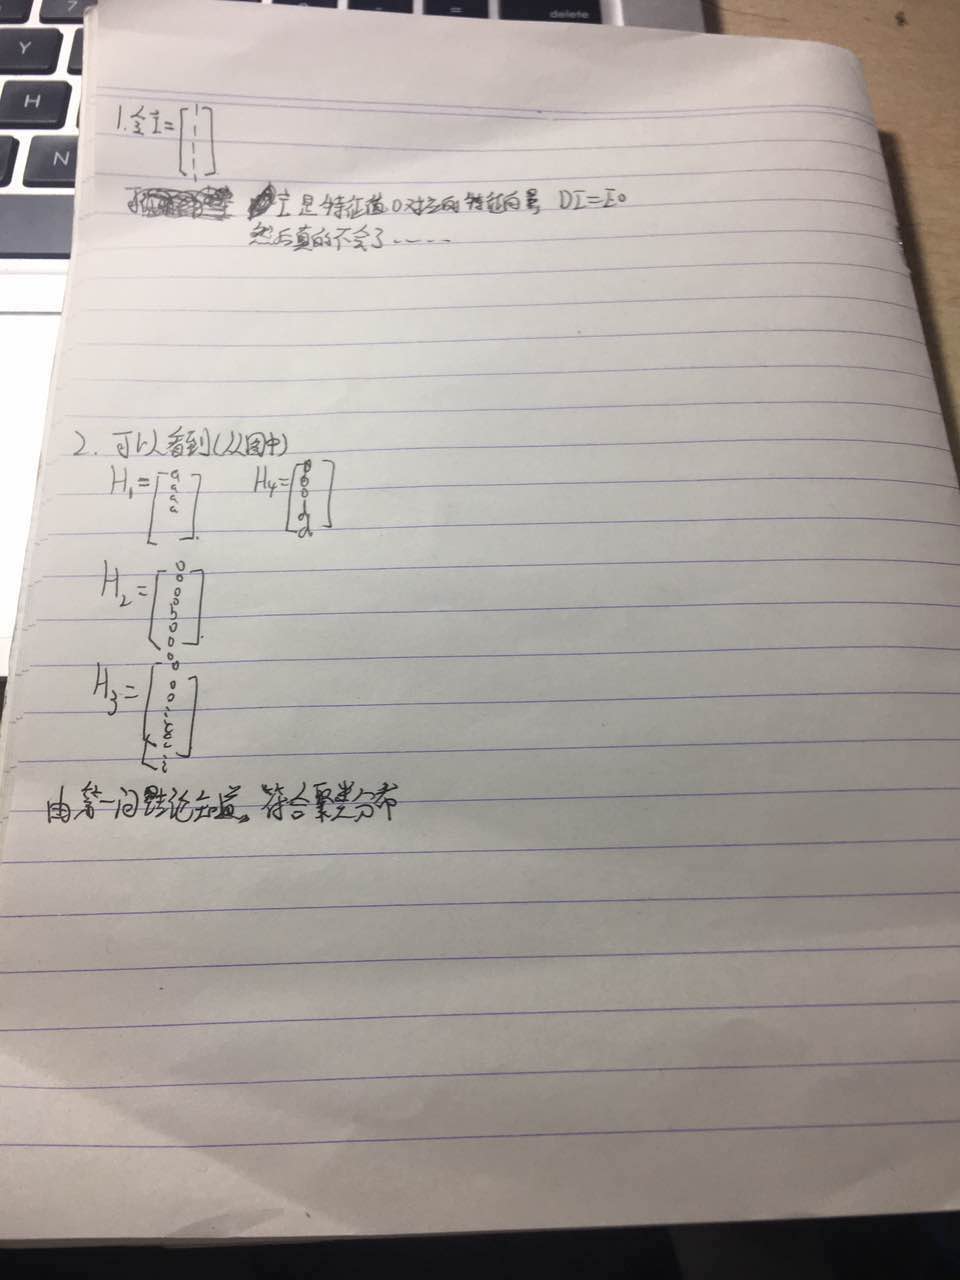 delete
7
Y
H
N
1. 令 I = [1 1 1 1 1]
I 是特征值0对应的特征向量 DI=I0
然后真的不会了......
2. 可以看到(从图中)
H1=[a a a a] H4=[0 0 0 d d]
H2=[0 0 0 0 b 0 0 0
H3=[0 0 0
由第一问结论知道。符合聚类分布